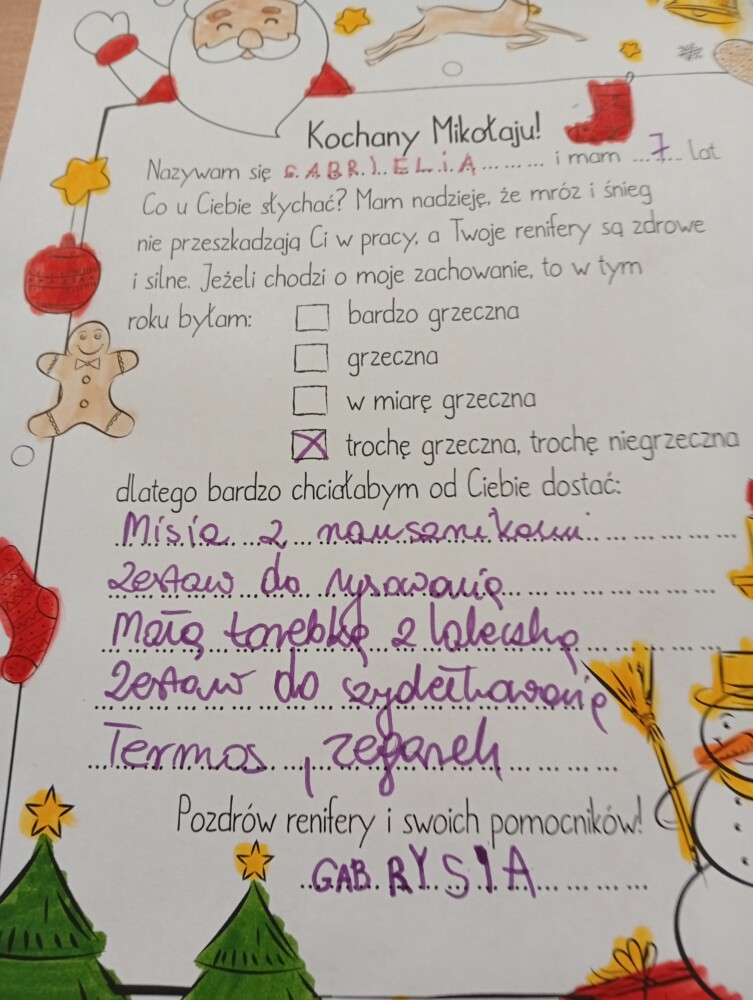 Kochany Mikołaju!
Nazywam się GABRIELIA i mam 7 lat
Co u Ciebie słychać? Mam nadzieję, że mróz i śnieg
nie przeszkadzają Ci w pracy, a Twoje renifery są zdrowe
i silne. Jeżeli chodzi o moje zachowanie, to w tym
roku byłam:
bardzo grzeczna
grzeczna
w miarę grzeczna
trochę grzeczna, trochę niegrzeczna
dlatego bardzo chciałabym od Ciebie dostać:
Misia z nausznikami
Zestaw do rysowania
Małą torebkę z laleczką
Zestaw do szydełkowania
Termos, zegarek
Pozdrów renifery i swoich pomocników!
GABRYSIA